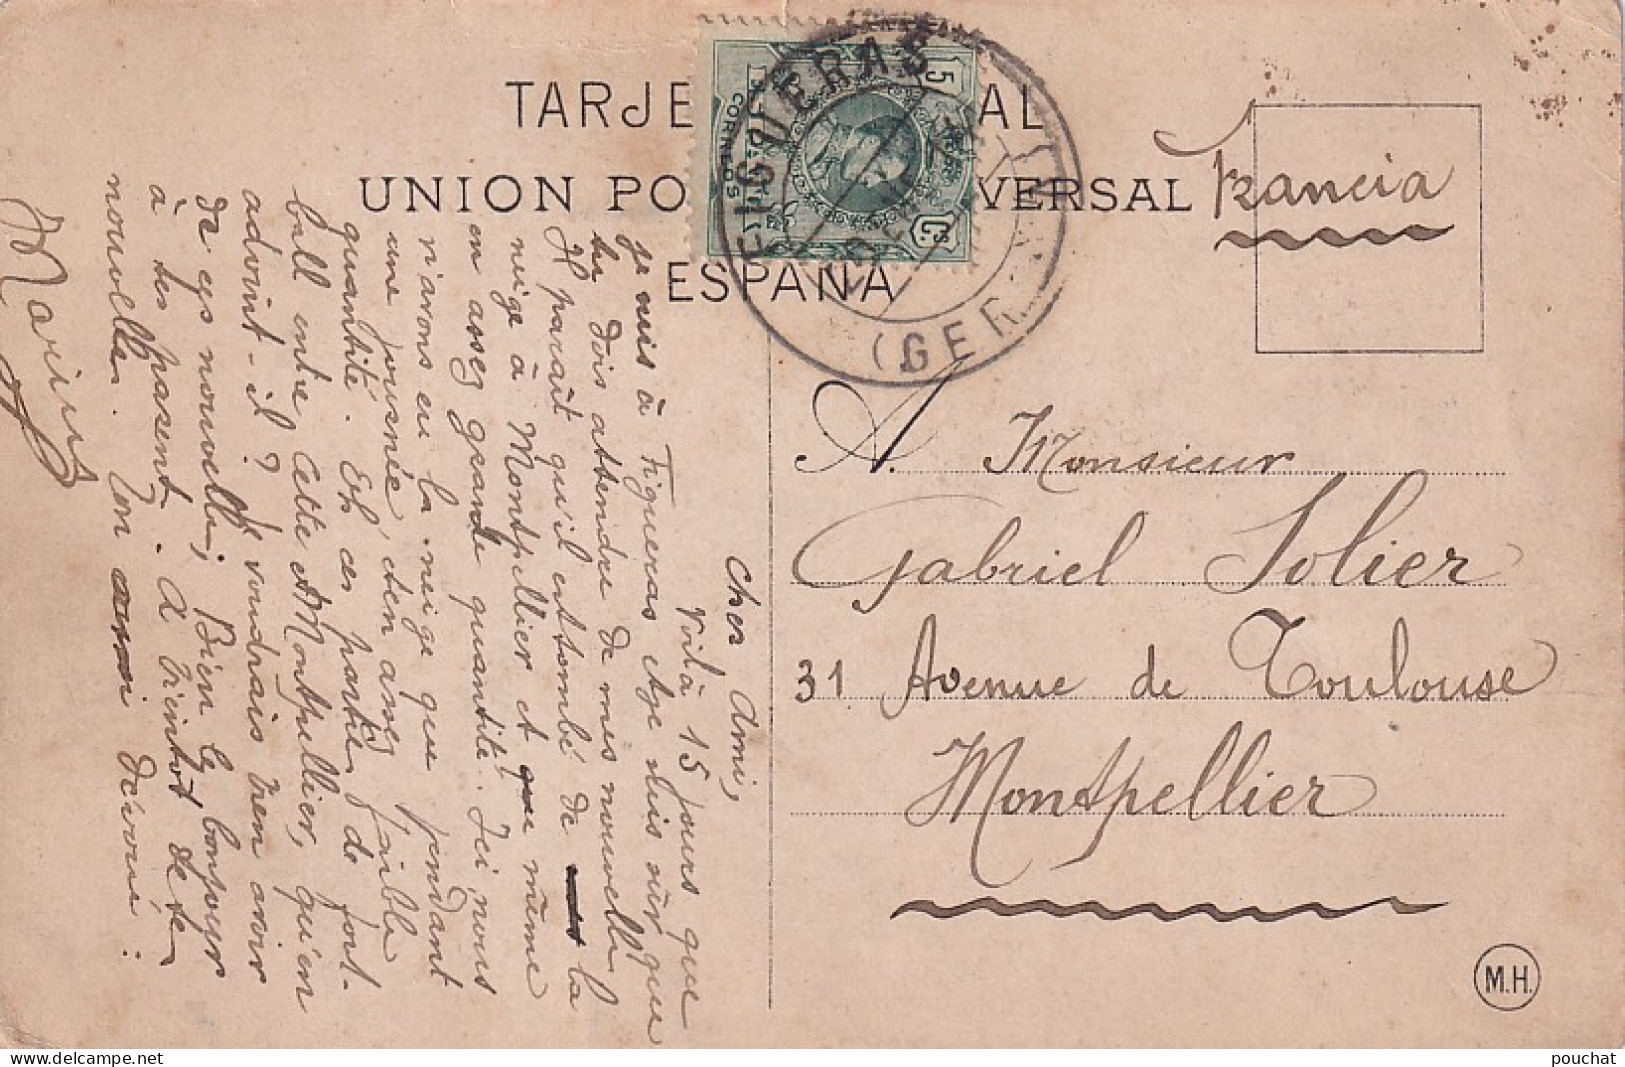 TARJE AL
UNION PO VERSAL
ESPAÑA
CORREOS
5
Cs.
FIGUERAS
(GER
Francia
A. Monsieur
Gabriel Solier
31 Avenue de Toulouse
Montpellier
M.H.
Cher Ami,
Voilà 15 jours que
je suis à Figueras et je suis sûr que
tu dois attendre de mes nouvelles
Il paraît qu'il est tombé de la
neige à Montpellier et même
en assez grande quantité. Ici nous
n'avons eu la neige que pendant
une journée, et en assez faible
quantité. Eh ces parties de foot-
ball entre Cette et Montpellier, qu'en
advint-il? Je voudrais bien avoir
de ces nouvelles. Bien le bonjour
à tes parents. A bientôt de te
nouvelles. Ton ami dévoué:
Marius
pouchat